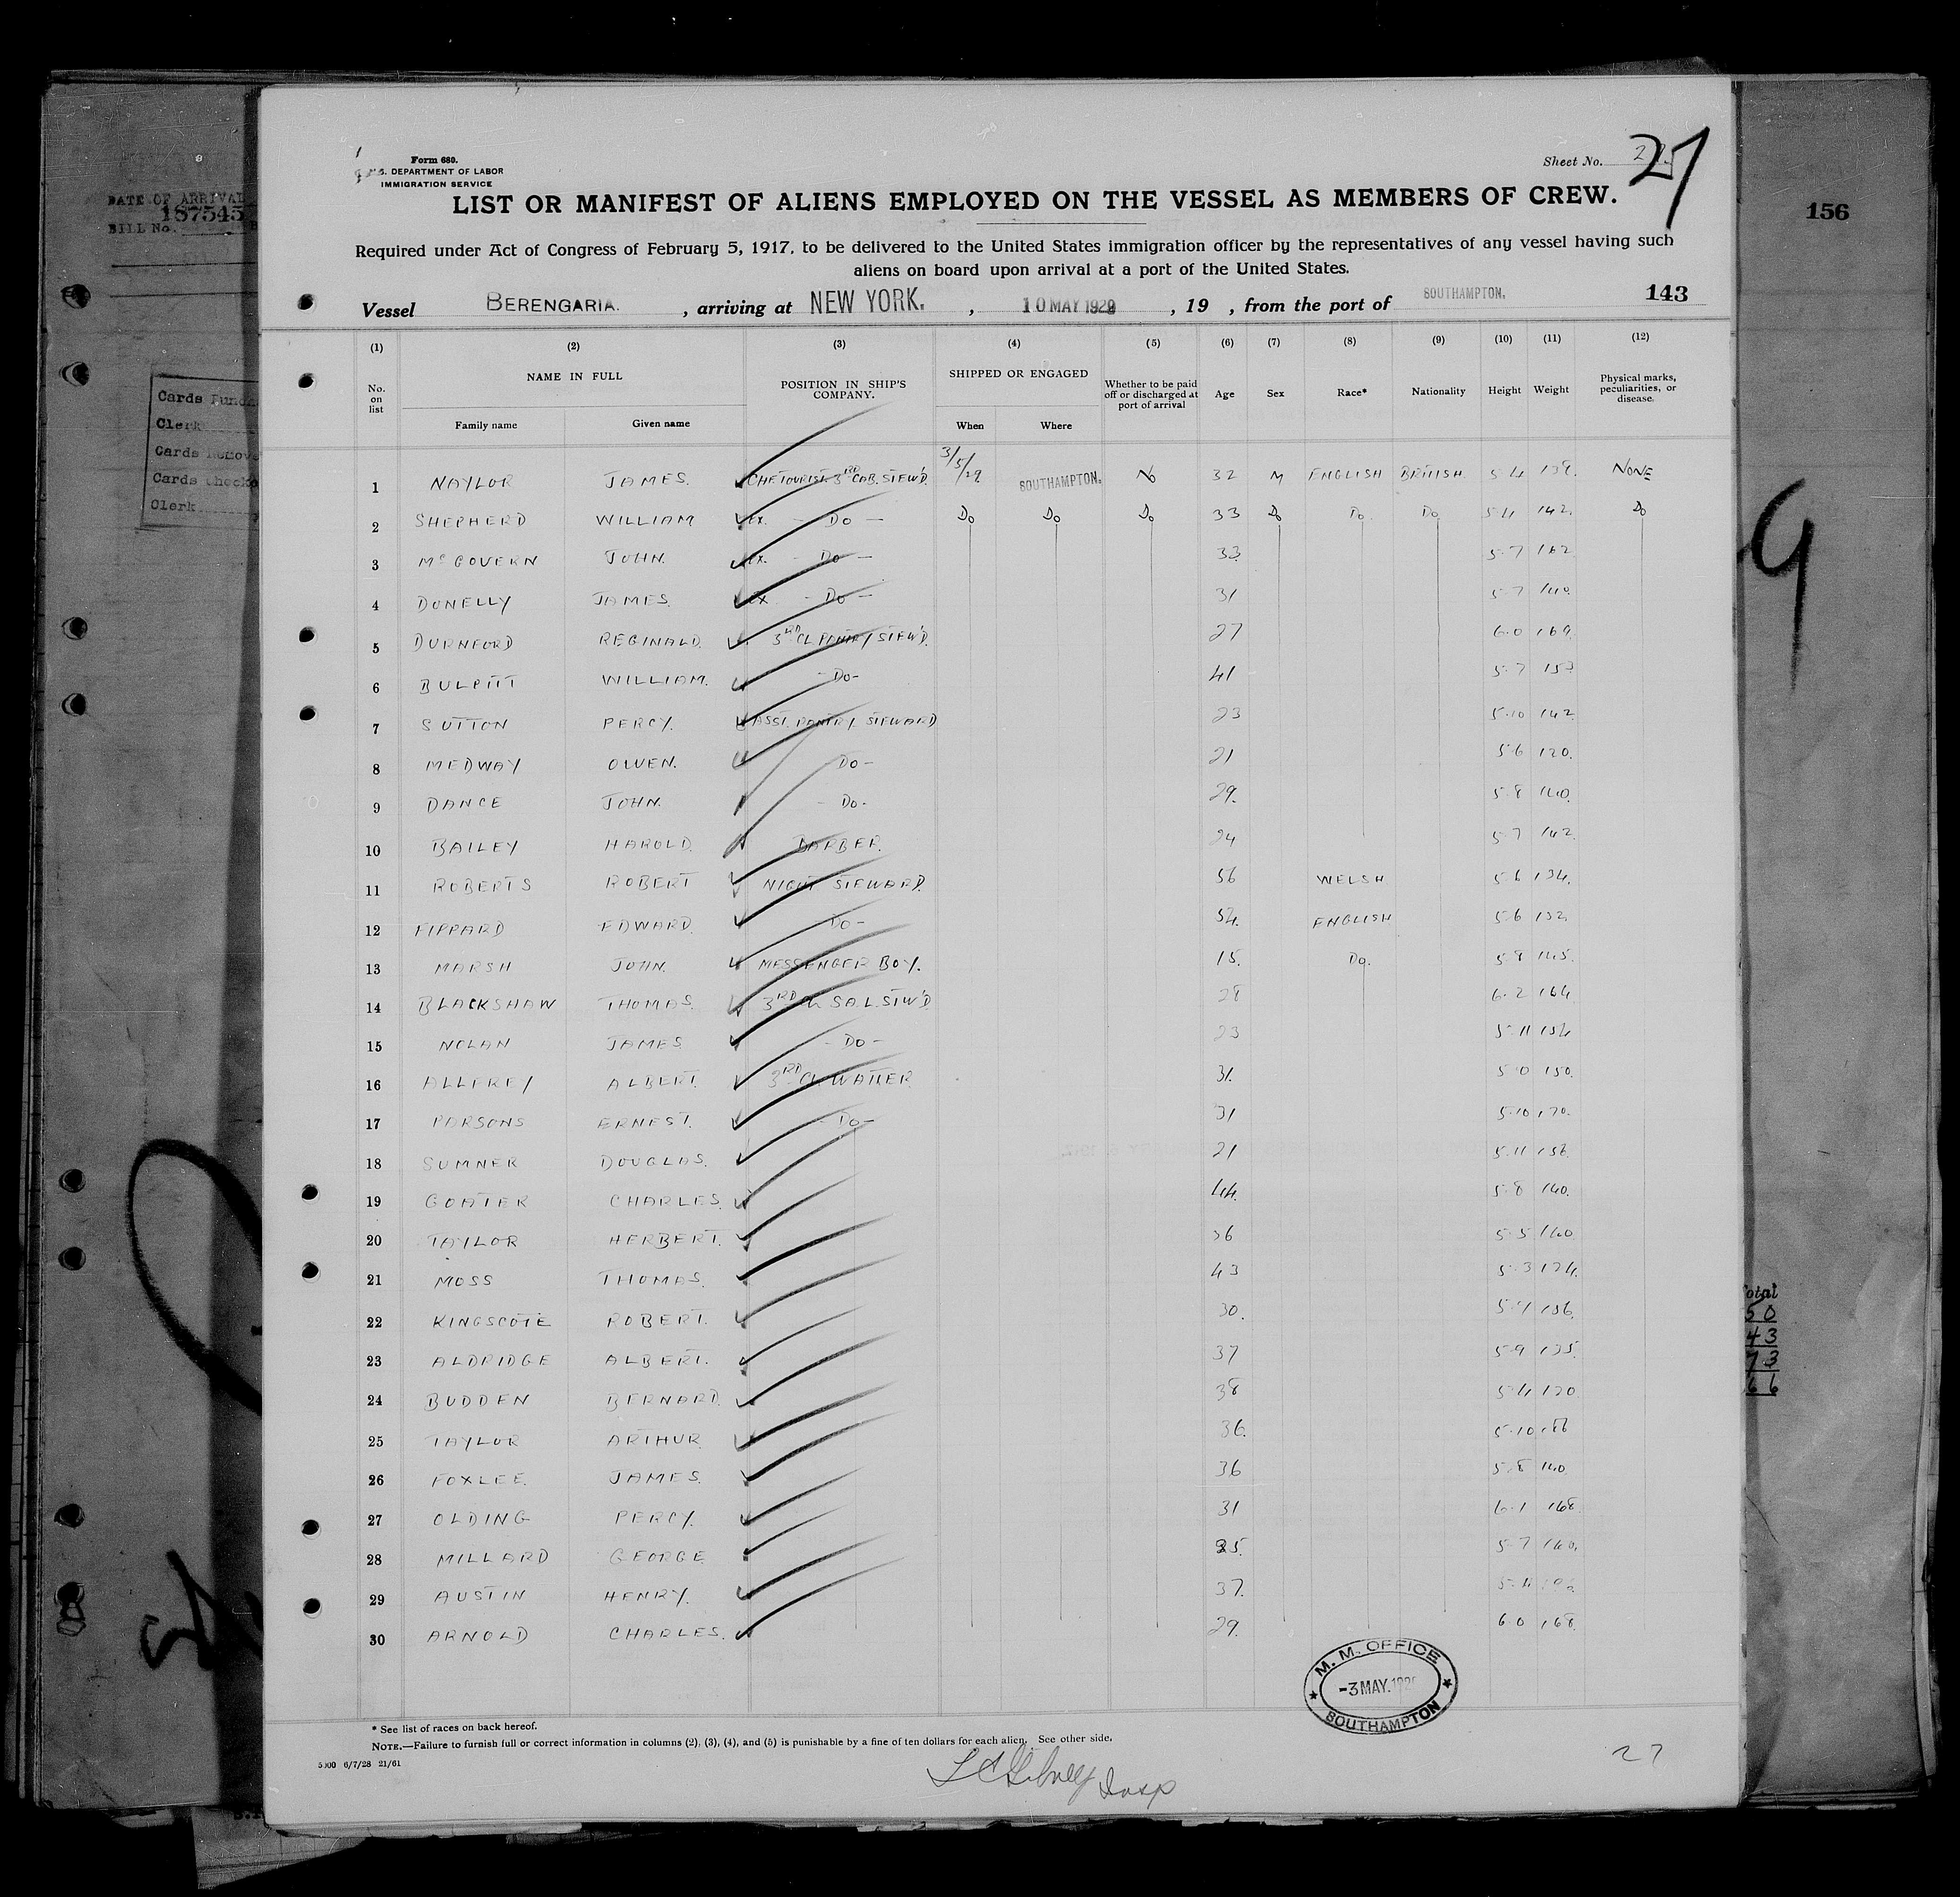 Form 680.
U.S. DEPARTMENT OF LABOR
IMMIGRATION SERVICE
Sheet No. 27
LIST OR MANIFEST OF ALIENS EMPLOYED ON THE VESSEL AS MEMBERS OF CREW.
Required under Act of Congress of February 5, 1917, to be delivered to the United States immigration officer by the representatives of any vessel having such
aliens on board upon arrival at a port of the United States.
Vessel BERENGARIA. , arriving at NEW YORK. , 10 MAY 1929 , 19 , from the port of SOUTHAMPTON. 143
(1) (2) (3) (4) (5) (6) (7) (8) (9) (10) (11) (12)
No. on list NAME IN FULL POSITION IN SHIP'S COMPANY. SHIPPED OR ENGAGED Whether to be paid off or discharged at port of arrival Age Sex Race* Nationality Height Weight Physical marks, peculiarities, or disease.
Family name Given name When Where
1 NAYLOR JAMES. CHF TOURIST 3RD CAB. STEW'D. 3/5/29 SOUTHAMPTON. No 32 M ENGLISH BRITISH 5 4 138. NONE
2 SHEPHERD WILLIAM EX. - Do - Do Do Do 33 Do Do. Do 5 4 142. Do
3 McGOVERN JOHN. EX. - Do - 33 5-7 162
4 DONELLY JAMES. EX - Do - 31 5-7 140.
5 DURNFORD REGINALD. 3RD CL PANTRY STEW'D. 27 6-0 169.
6 BULPITT WILLIAM. - Do - 41 5-7
7 SUTTON PERCY. ASST. PANTRY STEWARD 23 5-10 142
8 MEDWAY OWEN. - Do - 21 5-6 120.
9 DANCE JOHN. - Do. 29. 5-8 140.
10 BAILEY HAROLD. BARBER. 24 5-7 142
11 ROBERTS ROBERT NIGHT STEWARD. 56 WELSH 5-6 134.
12 FIPPARD EDWARD. - Do - 52. ENGLISH 5-6 132
13 MARSH JOHN. MESSENGER BOY. 15. Do. 5-8 145.
14 BLACKSHAW THOMAS. 3RD CL SAL STW'D 28 6-2 164
15 NOLAN JAMES - Do - 23 5-11 154
16 ALLFREY ALBERT. 3RD CL WAITER 31. 5-0 150.
17 PARSONS ERNEST. - Do - 31 5-10 170.
18 SUMNER DOUGLAS. 21 5-11 156.
19 GOATER CHARLES. 44. 5-8 140.
20 TAYLOR HERBERT. 36 5-5 140
21 MOSS THOMAS. 43 5-3 124.
22 KINGSCOTE ROBERT. 30. 136.
23 ALDRIDGE ALBERT. 37 5-9 135.
24 BUDDEN BERNARD. 38 5-4 120
25 TAYLOR ARTHUR 36. 5-10
26 FOXLEE. JAMES. 36 5-8 140
27 OLDING PERCY. 31 6-1 168
28 MILLARD GEORGE 35. 5-7 140.
29 AUSTIN HENRY. 37.
30 ARNOLD CHARLES. 29. 6-0 168.
M. M. OFFICE
-3 MAY. 1929
SOUTHAMPTON
* See list of races on back hereof.
NOTE.—Failure to furnish full or correct information in columns (2), (3), (4), and (5) is punishable by a fine of ten dollars for each alien. See other side.
5000 6/7/28 21/61
Insp
27
DATE OF ARRIVAL
187545
BILL No.
Clerk
Clerk
156
9